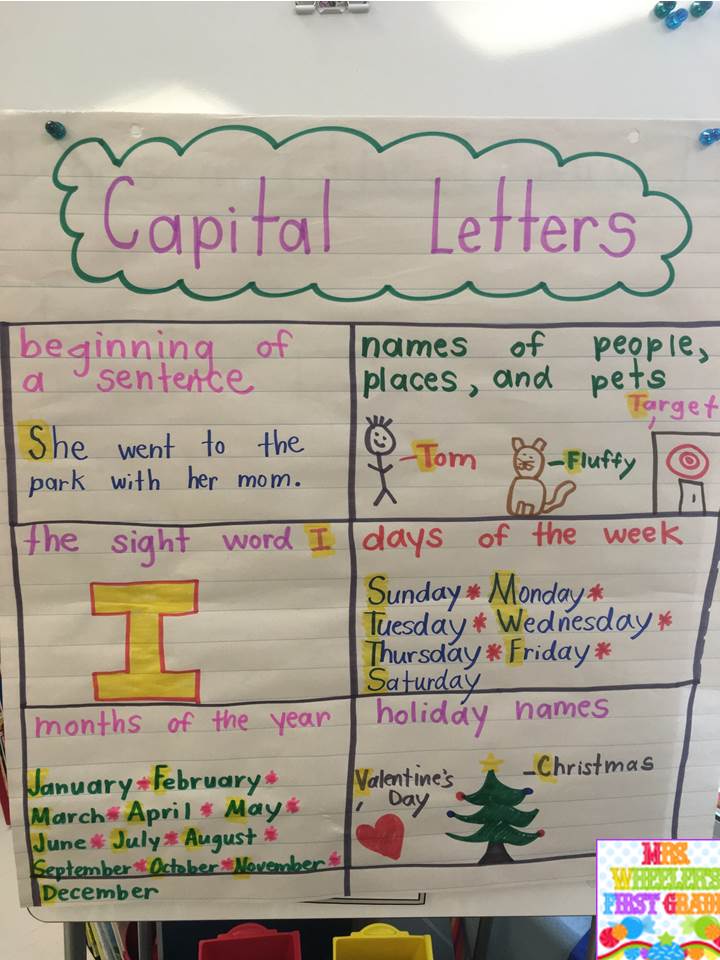 Capital Letters
beginning of
a sentence
She went to the
park with her mom.
names of people,
places, and pets
Target
Tom
Fluffy
the sight word I
I
days of the week
Sunday * Monday *
Tuesday * Wednesday *
Thursday * Friday *
Saturday
months of the year
January * February *
March * April * May *
June * July * August *
September * October * November *
December
holiday names
Valentine's
Day
Christmas
MRS.
WHEELER'S
FIRST GRADE